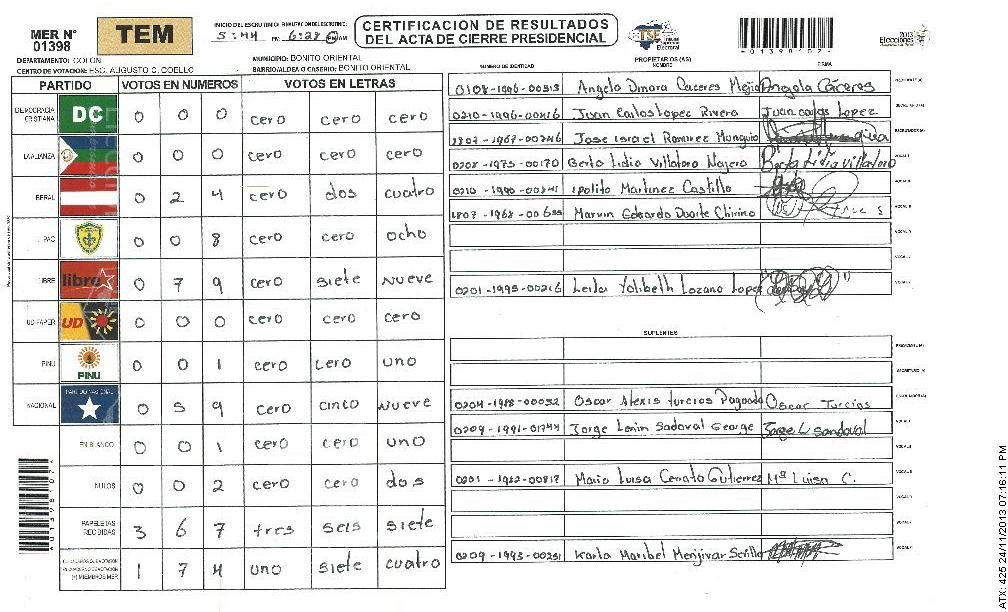 MER N° 01398
TEM
INICIO DEL ESCRUTINIO: FINALIZACION DEL ESCRUTINIO:
5:44 PM 6:28 PM AM
CERTIFICACION DE RESULTADOS
DEL ACTA DE CIERRE PRESIDENCIAL
TSE Tribunal Supremo Electoral
*01398107*
2013 Elecciones
DEPARTAMENTO: COLON
MUNICIPIO: BONITO ORIENTAL
CENTRO DE VOTACION: ESC. AUGUSTO C. COELLO
BARRIO/ALDEA O CASERIO: BONITO ORIENTAL
PARTIDO VOTOS EN NUMEROS VOTOS EN LETRAS
DEMOCRACIA CRISTIANA DC 0 0 0 cero cero cero
LA ALIANZA 0 0 0 cero cero cero
BERAL 0 2 4 cero dos cuatro
PAC 0 0 8 cero cero ocho
LIBRE libre 0 7 9 cero siete nueve
UD-FAPER UD 0 0 0 cero cero cero
PINU PINU 0 0 1 cero cero uno
NACIONAL PARTIDO NACIONAL 0 5 9 cero cinco nueve
EN BLANCO 0 0 1 cero cero uno
NULOS 0 0 2 cero cero dos
PAPELETAS RECIBIDAS 3 6 7 tres seis siete
(+) MIEMBROS MER 1 7 4 uno siete cuatro
NUMERO DE IDENTIDAD PROPIETARIOS (AS) NOMBRE FIRMA
Angela Dmora Caceres Mejia Angela Cáceres
0210-1996-00216 Juan Carlos Lopez Rivera Juan carlos Lopez
1807-1967-00246 Jose Israel Ramirez Munguia
0208-1975-00170 Berta Lidia Villatoro Najera Berta Lidia Villatoro
Ipolito Martinez Castillo
Marvin Edgardo Duarte Chirino
0201-1995-00216 Leila Yolibeth Lozano Lopez
SUPLENTES
0204-1988-00032 Oscar Alexis Turcios Pagoada Oscar Turcios
0209-1991-01744 Jorge Lenin Sadoval George Jorge L sandoval
0201-1982-00817 Maria Luisa Cerrato Gutierrez Mª Luisa C.
0209-1993-00251 Karla Maribel Menjivar Sevilla
*01398107*
ATX: 425 24/11/2013 07:16:11 PM